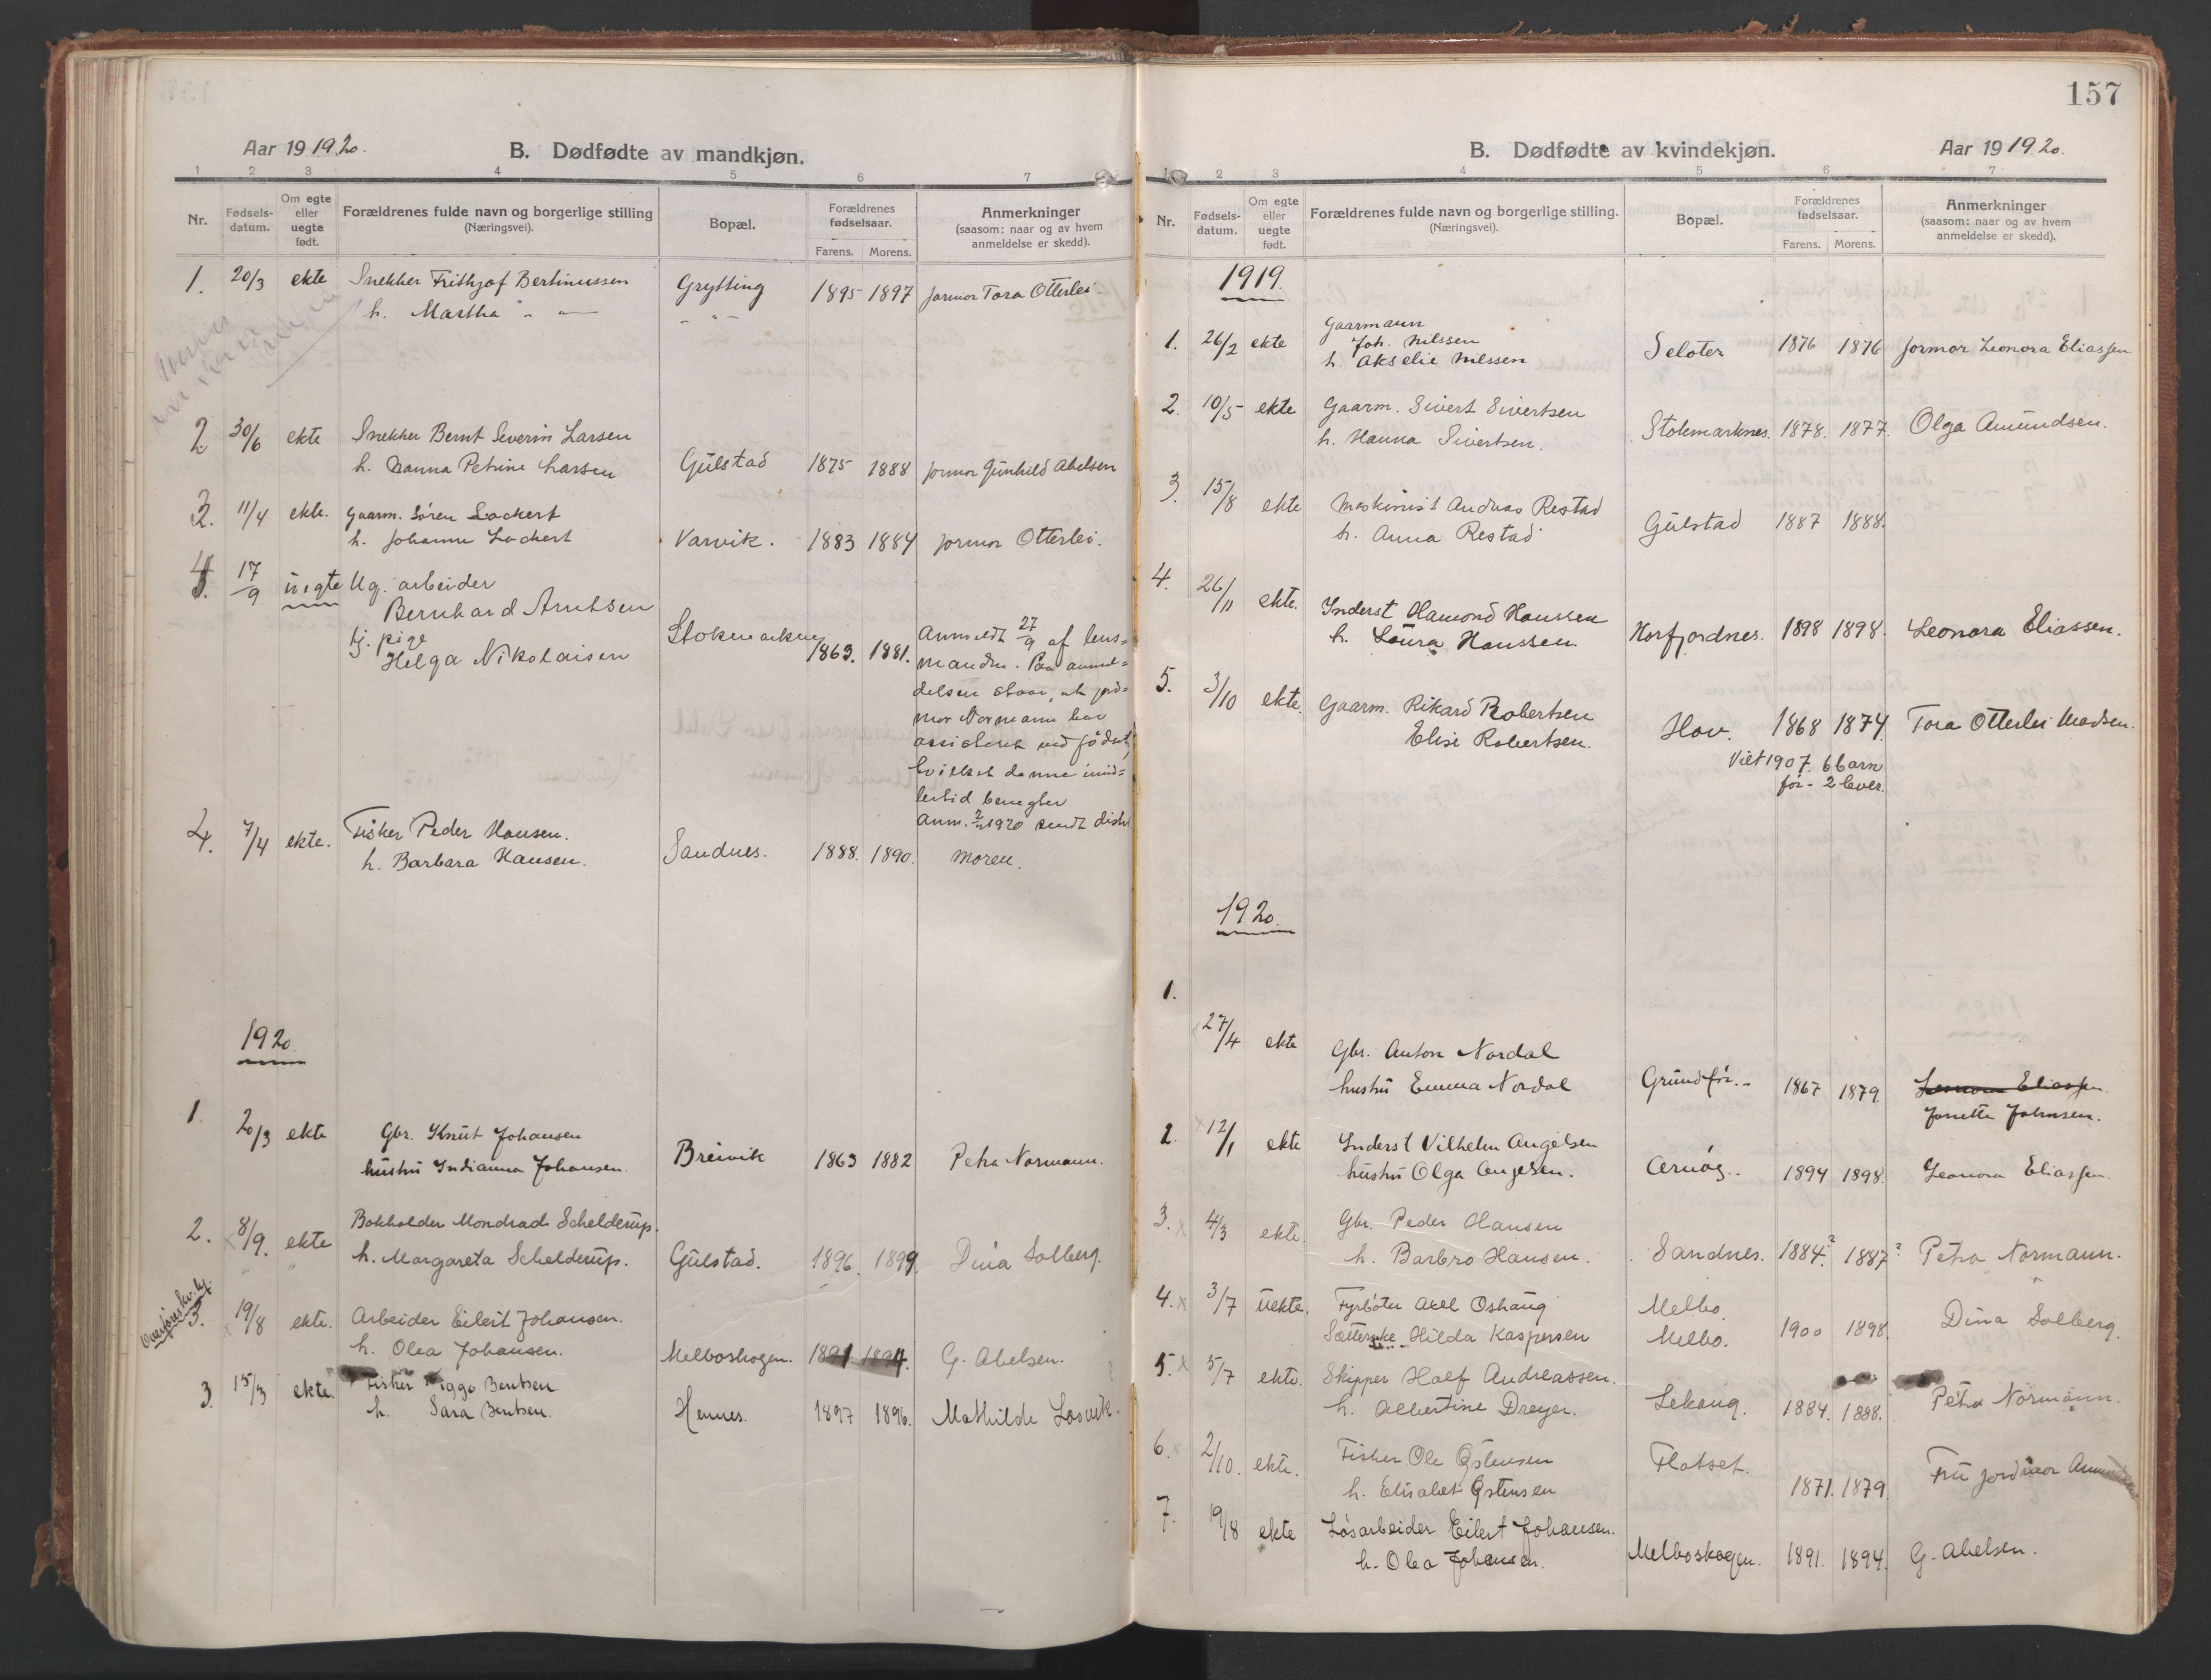 157
Aar 1919.20.
B. Dødfødte av mandkjøn.
1 2 3 4 5 6 7
Nr.
Fødsels-
datum.
Om egte
eller
uegte
født.
Forældrenes fulde navn og borgerlige stilling
(Næringsvei).
Bopæl.
Forældrenes
fødselsaar.
Farens. Morens.
Anmerkninger
(saasom: naar og av hvem
anmeldelse er skedd).
1. 20/3 ekte Snekker Frithjof Bertinussen Grytting 1895 1897 jormor Tora Otterlei.
h. Martha " " " "
2 30/6 ekte Snekker Bernt Severin Larsen
h. Nanna Petrine Larsen Gulstad 1875 1888 jormor Gunhild Abelsen
3. 11/4 ekte. Gaarm. Sören Lockert
h. Johanne Lockert Varvik. 1883 1884 jormor Otterlei.
4. 17/9 uegte Ug. arbeider
Bernhard Arntsen
tj. pige
Helga Nikolaisen Stokmarknes 1863. 1881.
Anmeldt 27/9 af lens-
manden. Paa anmel-
delsen staar, at jord-
mor Normann har
assisteret ved födsel,
hvilket denne imid-
lertid benegter
Anm. 1920 sendt distr
4. 7/4 ekte. Fisker Peder Hansen.
h. Barbara Hansen. Sandnes. 1888. 1890. moren.
1920.
1. 20/3 ekte Gbr. Knut Johansen
hustru Indianna Johansen. Breivik 1863 1882 Petra Normann.
2. x 8/9. ekte Bokholder Mondrad Schelderup.
h. Margareta Schelderup. Gulstad. 1896. 1899. Dina Solberg.
Overføres kv.kj.
3. x 19/8 ekte. Arbeider Eilert Johansen.
h. Olea Johansen. Melboskogen. 1891 1894. G. Abelsen.
3. 15/3 ekte. Fisker Viggo Bentsen
h. Sara Bentsen. Hennes. 1897 1896. Mathilde Losvik.
B. Dødfødte av kvindekjøn.
Aar 1919.20.
2 3 4 5 6 7
Nr.
Fødsels-
datum.
Om egte
eller
uegte
født.
Forældrenes fulde navn og borgerlige stilling.
(Næringsvei).
Bopæl.
Forældrenes
fødselsaar.
Farens. Morens.
Anmerkninger
(saasom: naar og av hvem
anmeldelse er skedd).
1919.
1. 26/2 ekte Gaarmann
Joh. Nilssen
h. Akselie Nilssen Seloter 1876 1876 jormor Leonora Eliassen
2. 10/5 ekte Gaarm. Sivert Sivertsen
h. Hanna Sivertsen. Stokmarknes. 1878. 1877. Olga Amundsen.
3. 15/8 ekte Maskinist Andreas Restad
h. Anna Restad Gulstad 1887 1888.
4. 26/11 ekte. Inderst Hamond Hanssen
h. Laura Hanssen. Horfjordnes. 1898 1898. Leonora Eliassen.
5. 3/10 ekte. Gaarm. Rikard Robertsen
Elise Robertsen. Hov. 1868 1874. Tora Otterlei Madsen.
Viet 1907. 6 barn
før - 2 lever.
1920.
1.
27/4 ekte Gbr. Anton Nordal
hustru Emma Nordal Grundfør.- 1867 1879. Leonora Eliassen.
Jonette Johnsen.
2. x 12/1 ekte Inderst Vilhelm Angelsen
hustru Olga Angelsen. Arnöy.- 1894 1898. Leonora Eliassen.
3. x 4/3 ekte. Gbr. Peder Hansen
h. Barbro Hansen. Sandnes. 1884.? 1887? Petra Normann.
4. x 3/7 uekte. Fyrböter Axel Oshaug Melbo.
Hilda Kaspersen Melbo. 1900 1898. Dina Solberg.
5. x 5/7 ekte. Skipper Half Andreassen.
h. Albertine Dreyer. Lekang. 1884. 1888. Petra Normann.
6. x 2/10. ekte. Fisker Ole Østensen Flatset.
h. Elisabet Østensen 1871. 1879. Fru jordmor Amundsen
7. 19/8 ekte Løsarbeider Eilert Johansen.
h. Olea Johansen. Melboskogen. 1891. 1894. G. Abelsen.